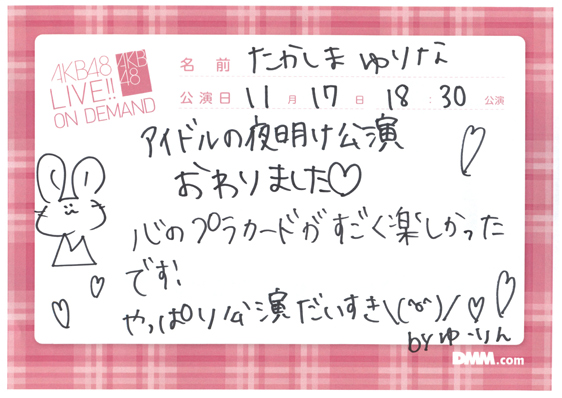 AKB48
LIVE!!
ON DEMAND
AKB
48
名前 たかしまゆりな
公演日 11月17日 18:30公演
アイドルの夜明け公演
おわりました♡
心のプラカードがすごく楽しかった
です!
やっぱり公演だいすき\(^o^)/♡
by ゆーりん
DMM.com